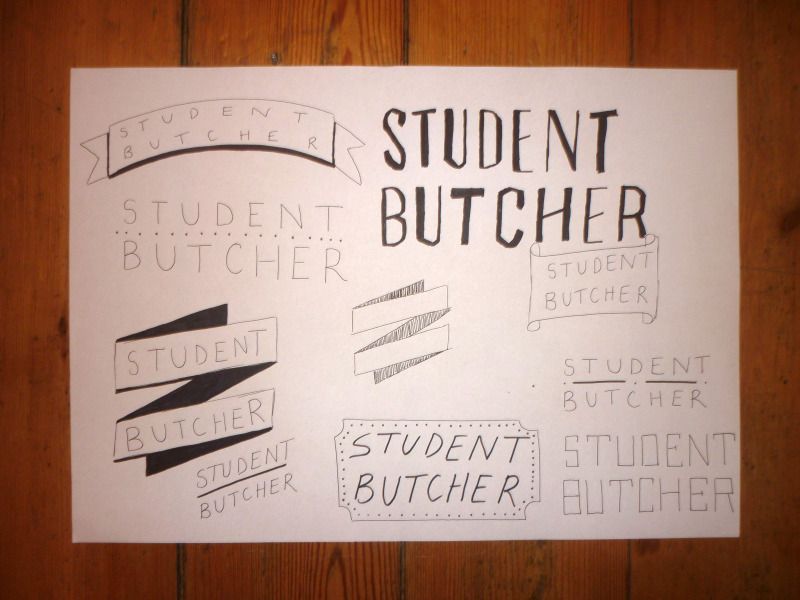 STUDENT
BUTCHER
STUDENT
BUTCHER
STUDENT
BUTCHER
STUDENT
BUTCHER
STUDENT
BUTCHER
STUDENT
BUTCHER
STUDENT
BUTCHER
STUDENT
BUTCHER
STUDENT
BUTCHER